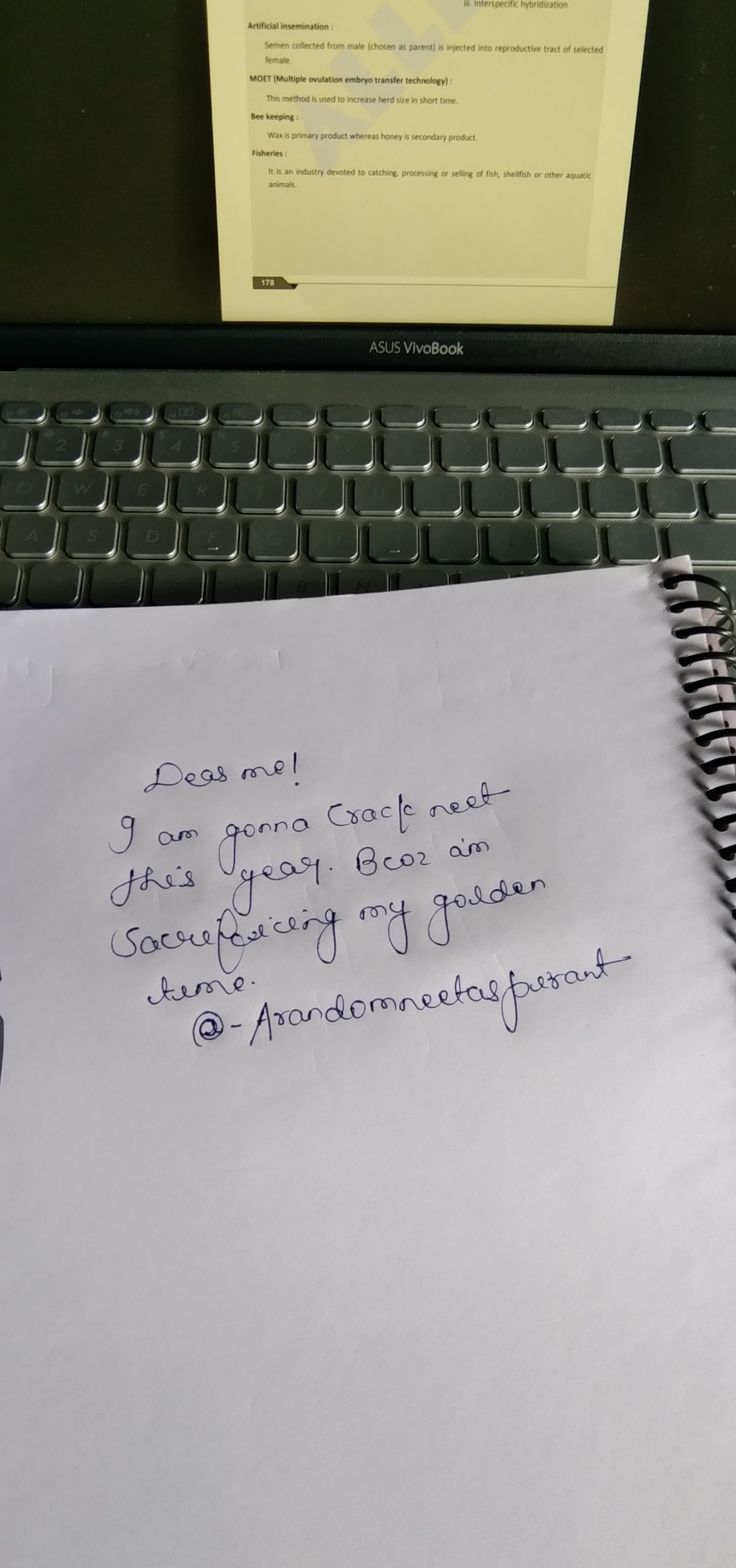 iii. Interspecific hybridization
Artificial insemination :
Semen collected from male (chosen as parent) is injected into reproductive tract of selected
female.
MOET (Multiple ovulation embryo transfer technology) :
This method is used to increase herd size in short time.
Bee keeping :
Wax is primary product whereas honey is secondary product.
Fisheries :
It is an industry devoted to catching, processing or selling of fish, shellfish or other aquatic
animals.
178
ASUS VivoBook
2 3 4 5
Q W E R T
A S D F G
Dear me!
I am gonna Crack neet
this year. Bcoz aim
Sacrificing my golden
time.
@-Arandomneetaspirant